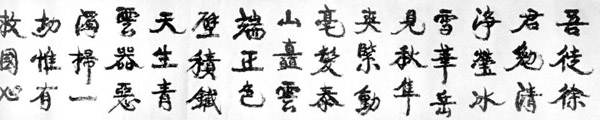 吾徒徐
君勉清
淨瑩冰
雪華岳
見秋隼
爽緊動
毫髮泰
山矗雲
端正色
壁積鐵
天生青
雲器惡
濁掃一
劫惟有
救國心